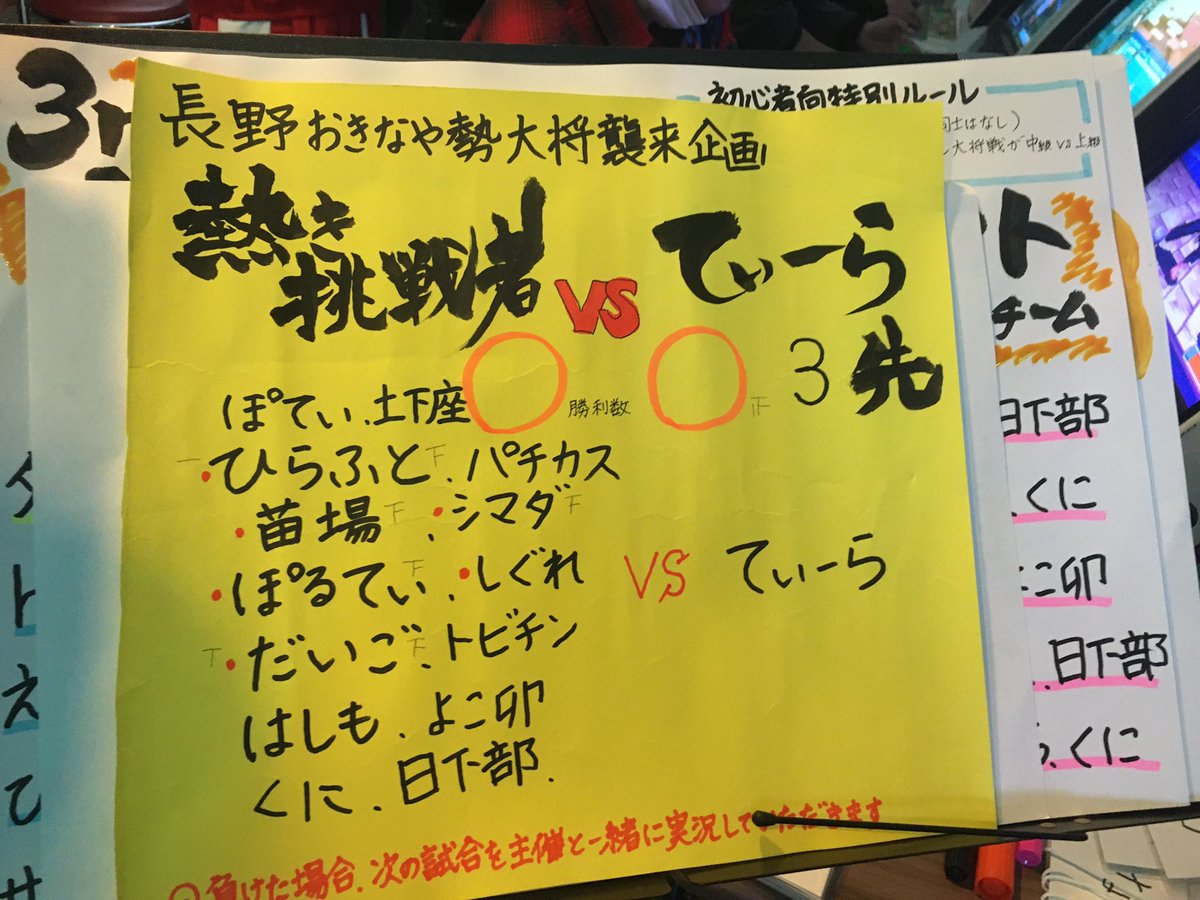 長野おきなや勢大将襲来企画
熱き挑戦者 VS てぃーら
3先
ぽてぃ、土下座
勝利数
正
一 ・ひらふと 下、パチカス
・苗場 下、・シマダ 下
・ぽるてぃ 下、・しぐれ VS てぃーら
下 ・だいご 下、トビチン
はしも、よこ卯
くに、日下部、
負けた場合、次の試合を主催と一緒に実況していただきます
初心者向特別ルール
士はなし)
大将戦が中級VS上級
ント
チーム
日下部
、くに
よこ卯
、日下部
、くに
3r
タ
ト
え
て
サ